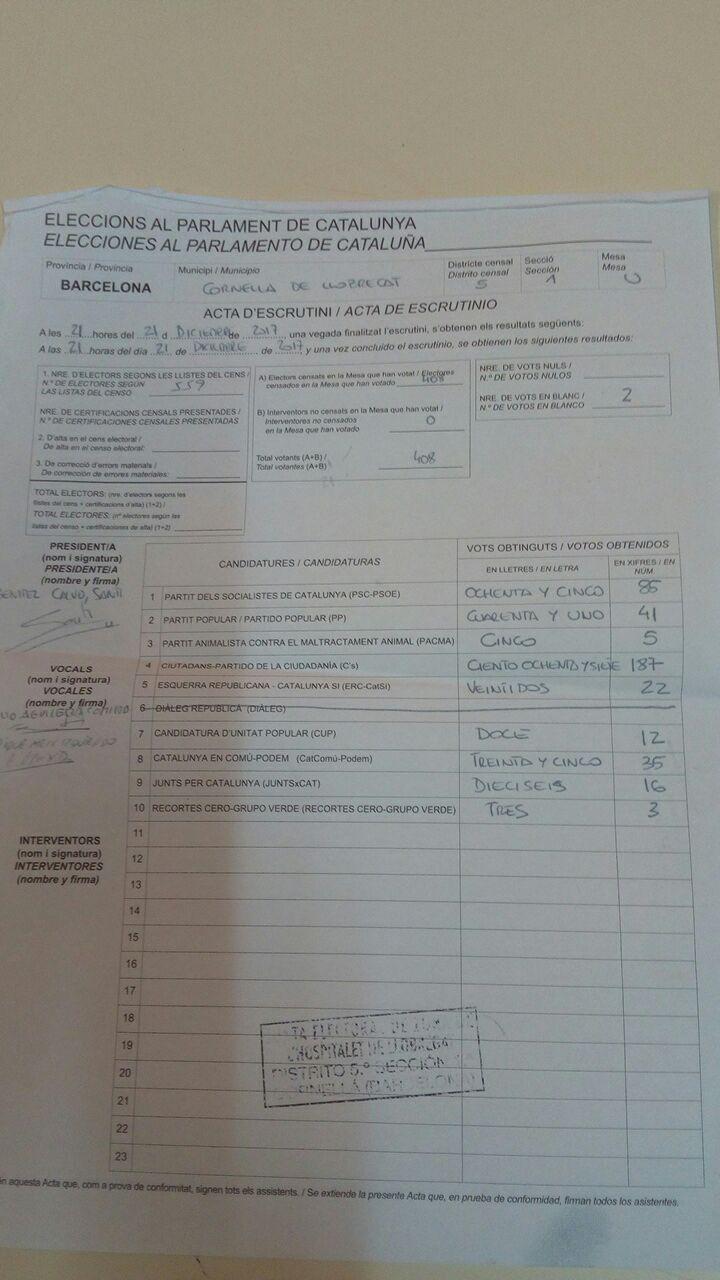 ELECCIONS AL PARLAMENT DE CATALUNYA
ELECCIONES AL PARLAMENTO DE CATALUÑA
Província / Provincia
BARCELONA
Municipi / Municipio
CORNELLA DE LLOBREGAT
Districte censal
Distrito censal
5
Secció
Sección
1
Mesa
Mesa
U
ACTA D'ESCRUTINI / ACTA DE ESCRUTINIO
A les 21 hores del 21 d DICIEMBRE de 2017, una vegada finalitzat l'escrutini, s'obtenen els resultats següents:
A las 21 horas del día 21 de DICIEMBRE de 2017 y una vez concluido el escrutinio, se obtienen los siguientes resultados:
1. NRE. D'ELECTORS SEGONS LES LLISTES DEL CENS /
N.º DE ELECTORES SEGÚN
LAS LISTAS DEL CENSO
559
NRE. DE CERTIFICACIONS CENSALS PRESENTADES /
N.º DE CERTIFICACIONES CENSALES PRESENTADAS
2. D'alta en el cens electoral /
De alta en el censo electoral:
3. De correcció d'errors materials /
De corrección de errores materiales:
TOTAL ELECTORS: (nre. d'electors segons les
llistes del cens + certificacions d'alta) (1+2) /
TOTAL ELECTORES: (nº electores según las
listas del censo + certificaciones de alta) (1+2)
A) Electors censats en la Mesa que han votat / Electores
censados en la Mesa que han votado 408
B) Interventors no censats en la Mesa que han votat /
Interventores no censados
en la Mesa que han votado 0
Total votants (A+B) /
Total votantes (A+B) 408
NRE. DE VOTS NULS /
N.º DE VOTOS NULOS
NRE. DE VOTS EN BLANC /
N.º DE VOTOS EN BLANCO 2
PRESIDENT/A
(nom i signatura)
PRESIDENTE/A
(nombre y firma)
BENITEZ CALVO, SANTI
VOCALS
(nom i signatura)
VOCALES
(nombre y firma)
INTERVENTORS
(nom i signatura)
INTERVENTORES
(nombre y firma)
CANDIDATURES / CANDIDATURAS
VOTS OBTINGUTS / VOTOS OBTENIDOS
EN LLETRES / EN LETRA
EN XIFRES / EN NÚM.
1 PARTIT DELS SOCIALISTES DE CATALUNYA (PSC-PSOE) OCHENTA Y CINCO 85
2 PARTIT POPULAR / PARTIDO POPULAR (PP) CUARENTA Y UNO 41
3 PARTIT ANIMALISTA CONTRA EL MALTRACTAMENT ANIMAL (PACMA) CINCO 5
4 CIUTADANS-PARTIDO DE LA CIUDADANÍA (C's) CIENTO OCHENTA Y SIETE 187
5 ESQUERRA REPUBLICANA - CATALUNYA SÍ (ERC-CatSí) VEINTIDOS 22
6 DIÀLEG REPUBLICÀ (DIÀLEG)
7 CANDIDATURA D'UNITAT POPULAR (CUP) DOCE 12
8 CATALUNYA EN COMÚ-PODEM (CatComú-Podem) TREINTA Y CINCO 35
9 JUNTS PER CATALUNYA (JUNTSxCAT) DIECISEIS 16
10 RECORTES CERO-GRUPO VERDE (RECORTES CERO-GRUPO VERDE) TRES 3
11
12
13
14
15
16
17
18
19
20
21
22
23
L'HOSPITALET DE LLOBREGAT
DISTRITO 5.º SECCIÓN
én aquesta Acta que, com a prova de conformitat, signen tots els assistents. / Se extiende la presente Acta que, en prueba de conformidad, firman todos los asistentes.